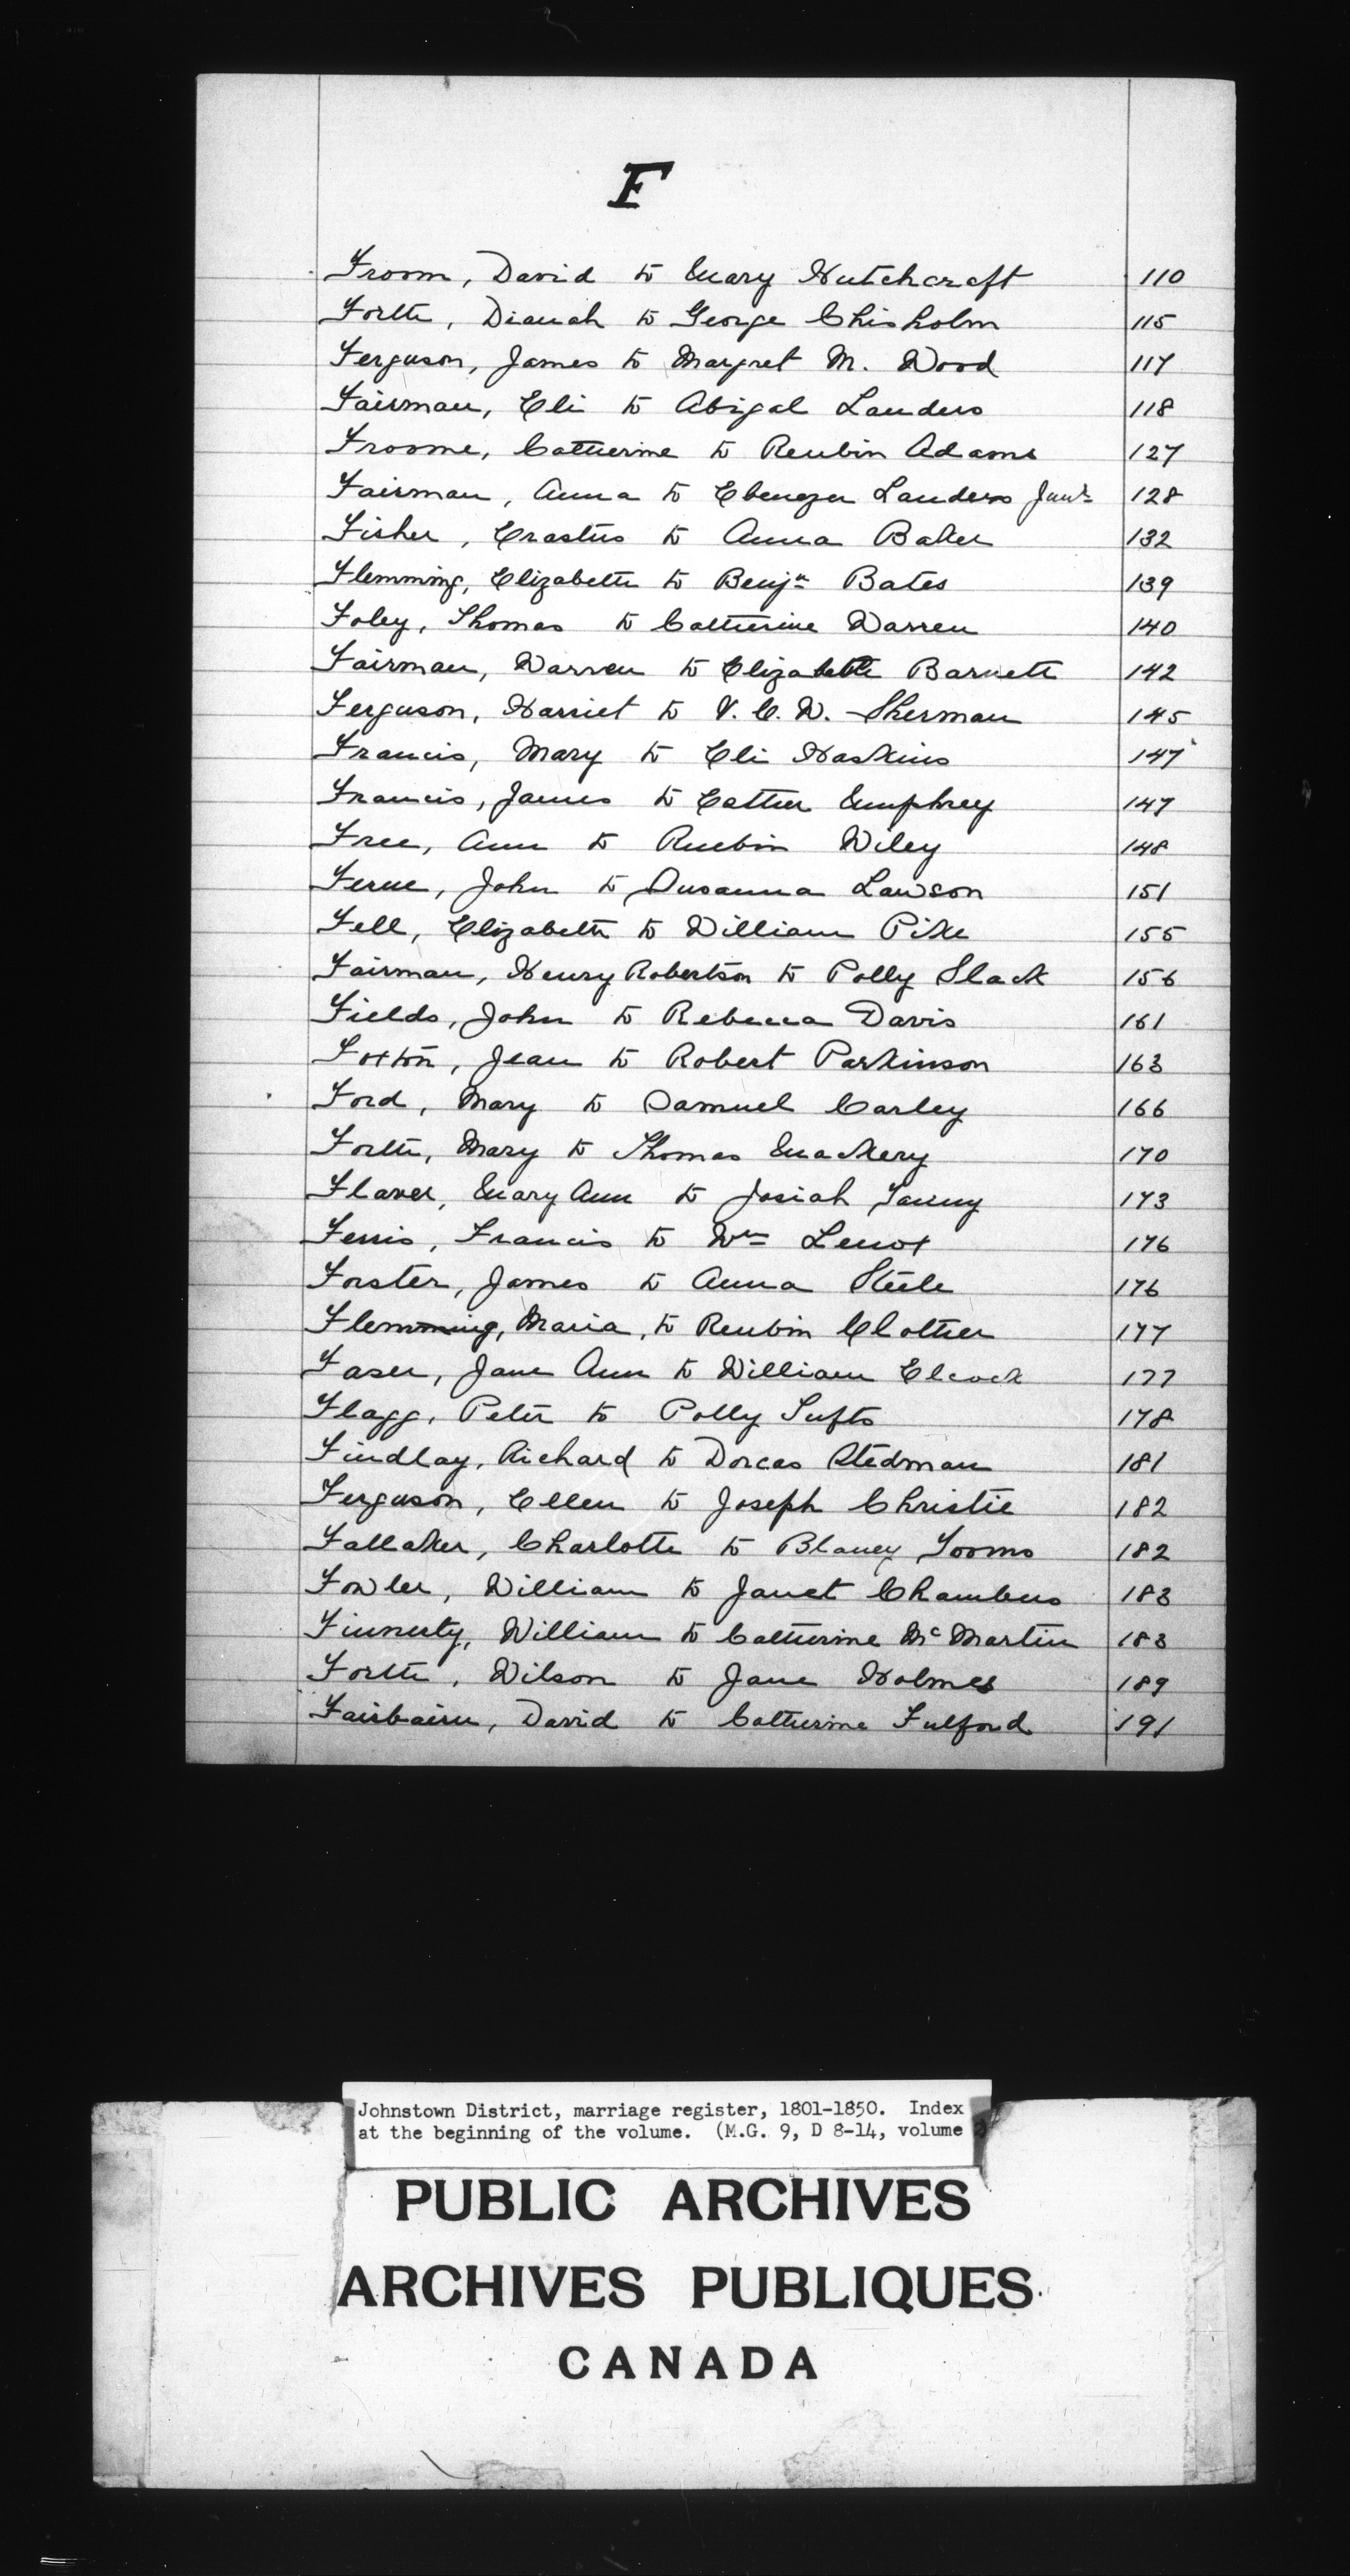 F
Froom, David to Mary Hutchcraft 110
Forth, Dianah to George Chisholm 115
Ferguson, James to Margret M. Wood 117
Fairman, Eli to Abigal Landers 118
Froome, Catherine to Reubin Adams 127
Fairman, Anna to Ebenezer Landers Junr 128
Fisher, Erastus to Anna Baker 132
Flemming, Elizabeth to Benjn Bates 139
Foley, Thomas to Catherine Warren 140
Fairman, Warren to Elizabeth Barnett 142
Ferguson, Harriet to V. C. W. Sherman 145
Francis, Mary to Eli Haskins 147
Francis, James to Esther Umphrey 147
Free, Ann to Ruebin Wiley 148
Ferne, John to Susanna Lawson 151
Fell, Elizabeth to William Pike 155
Fairman, Henry Robertson to Polly Slack 156
Fields, John to Rebecca Davis 161
Foxton, Jean to Robert Parkinson 163
Ford, Mary to Samuel Carley 166
Forth, Mary to Thomas Mackery 170
Flaver, Mary Ann to Josiah 173
Ferris, Francis to Wm Lenox 176
Forster, James to Anna Steele 176
Flemming, Maria, to Reubin Clother 177
Faser, Jane Ann to William Elcock 177
Flagg, Peter to Polly Tufts 178
Findlay, Richard to Dorcas Stedman 181
Ferguson, Ellen to Joseph Christie 182
Fallaker, Charlotte to Blaney Tooms 182
Fowler, William to Janet Chambers 183
Finnerty, William to Catherine McMartin 183
Forth, Wilson to Jane Holmes 189
Fairbairn, David to Catherine Fulford 191
Johnstown District, marriage register, 1801-1850. Index
at the beginning of the volume. (M.G. 9, D 8-14, volume
PUBLIC ARCHIVES
ARCHIVES PUBLIQUES
CANADA